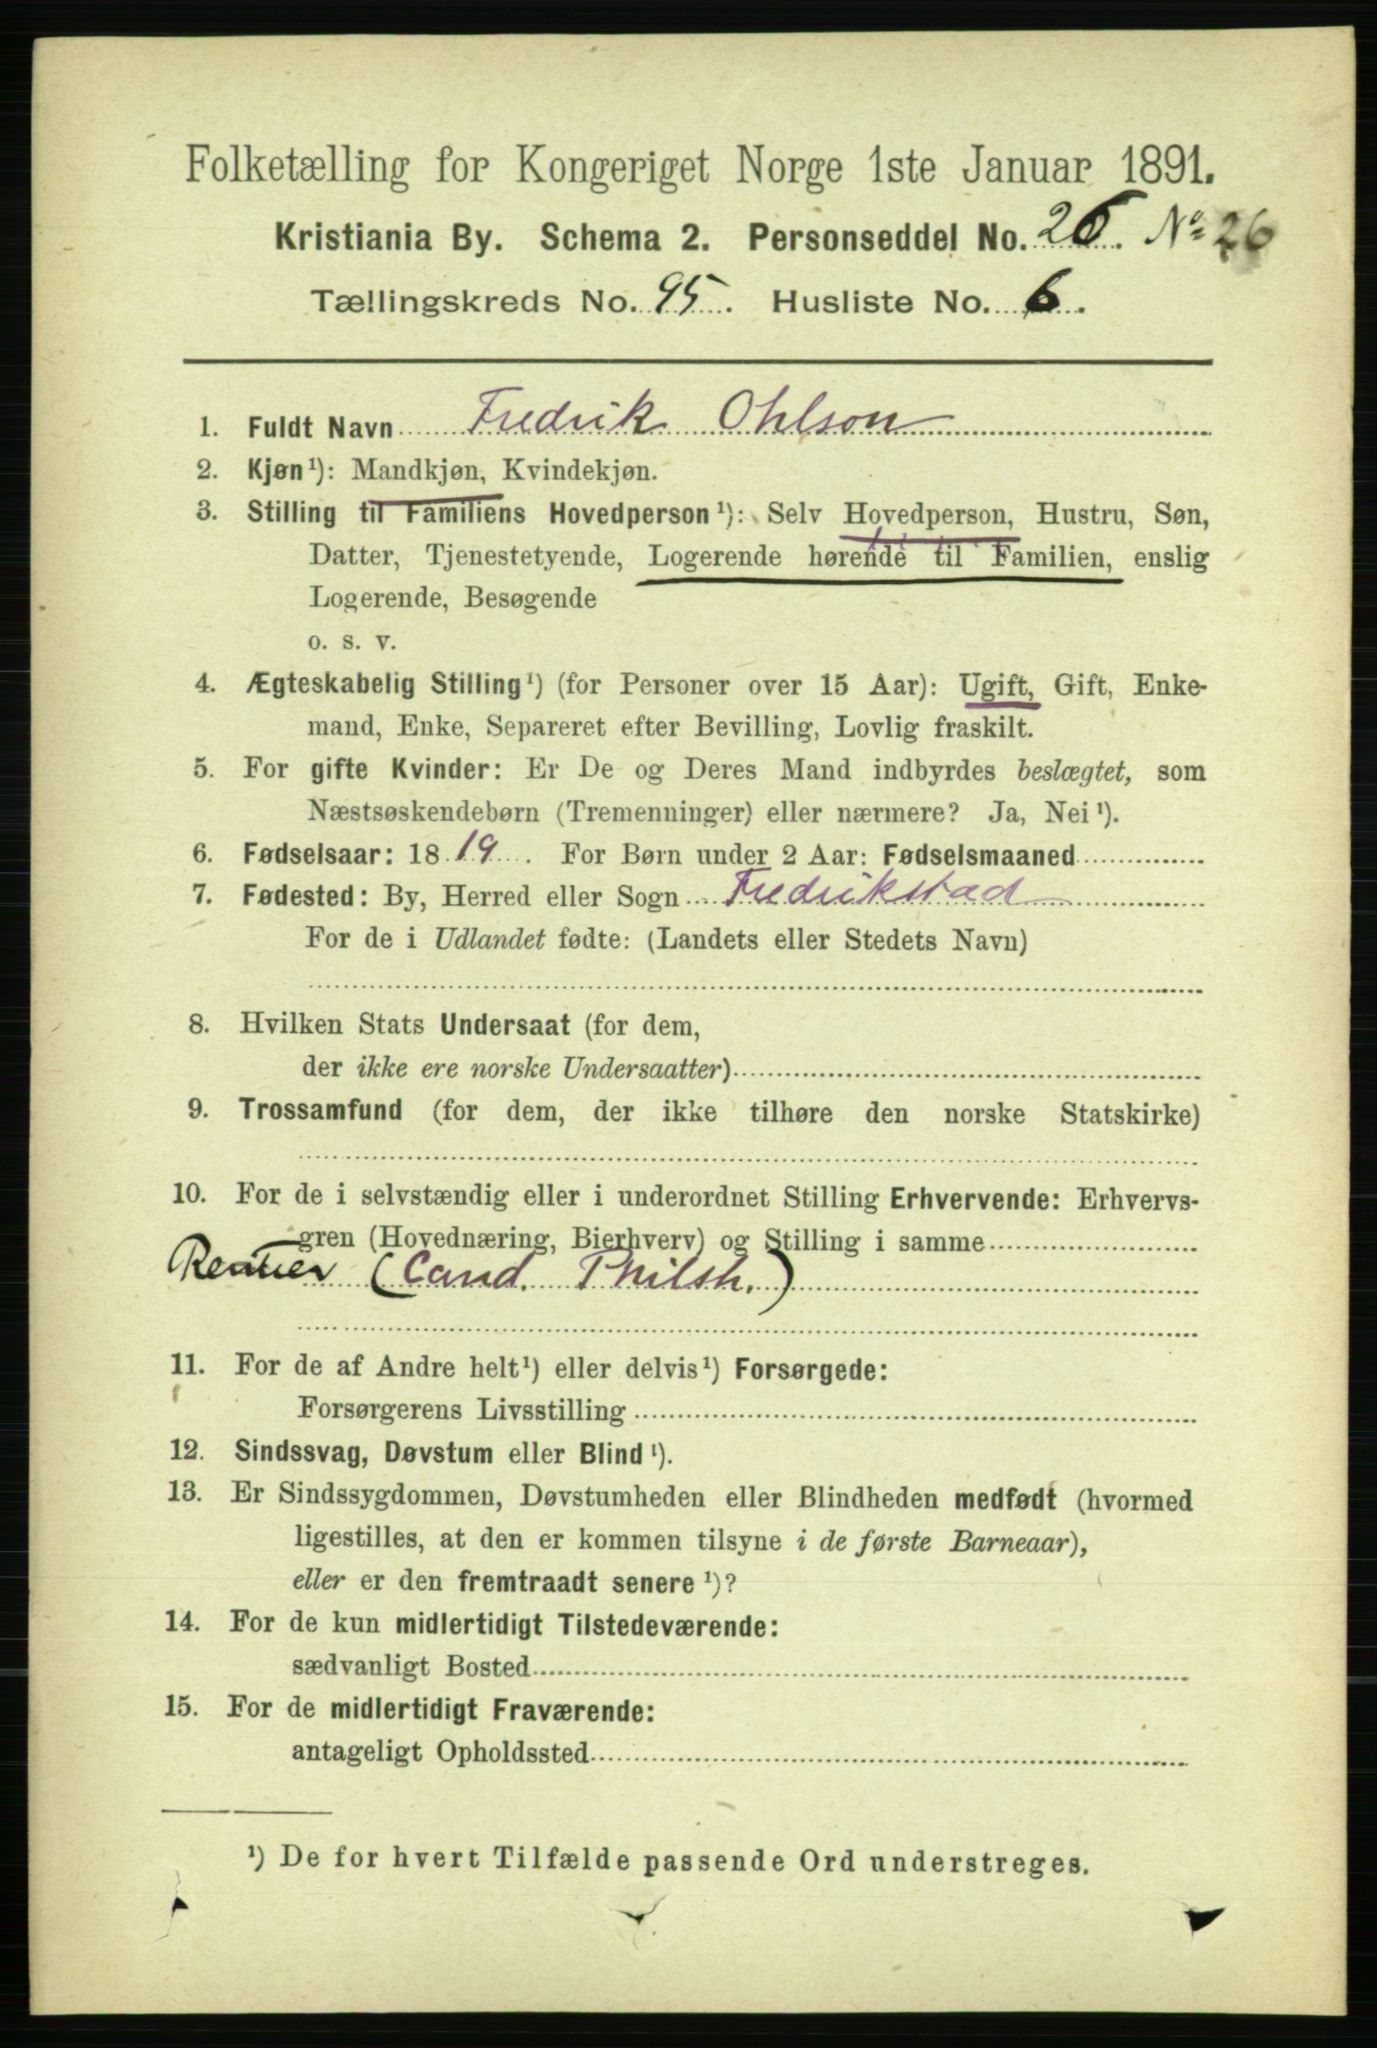 Folketælling for Kongeriget Norge 1ste Januar 1891.
Kristiania By. Schema 2. Personseddel No. 26. No 26
Tællingskreds No. 95. Husliste No. 6.
1. Fuldt Navn Fredrik Ohlson
2. Kjøn¹): Mandkjøn, Kvindekjøn.
3. Stilling til Familiens Hovedperson¹): Selv Hovedperson, Hustru, Søn,
Datter, Tjenestetyende, Logerende hørende til Familien, enslig
Logerende, Besøgende
o. s. v.
4. Ægteskabelig Stilling¹) (for Personer over 15 Aar): Ugift, Gift, Enke-
mand, Enke, Separeret efter Bevilling, Lovlig fraskilt.
5. For gifte Kvinder: Er De og Deres Mand indbyrdes beslægtet, som
Næstsøskendebørn (Tremenninger) eller nærmere? Ja, Nei¹).
6. Fødselsaar: 1819. For Børn under 2 Aar: Fødselsmaaned
7. Fødested: By, Herred eller Sogn Fredrikstad
For de i Udlandet fødte: (Landets eller Stedets Navn)
8. Hvilken Stats Undersaat (for dem,
der ikke ere norske Undersaatter)
9. Trossamfund (for dem, der ikke tilhøre den norske Statskirke)
10. For de i selvstændig eller i underordnet Stilling Erhvervende: Erhvervs-
gren (Hovednæring, Bierhverv) og Stilling i samme
Rentier (Cand. Philsh.)
11. For de af Andre helt¹) eller delvis¹) Forsørgede:
Forsørgerens Livsstilling
12. Sindssvag, Døvstum eller Blind¹).
13. Er Sindssygdommen, Døvstumheden eller Blindheden medfødt (hvormed
ligestilles, at den er kommen tilsyne i de første Barneaar),
eller er den fremtraadt senere¹)?
14. For de kun midlertidigt Tilstedeværende:
sædvanligt Bosted
15. For de midlertidigt Fraværende:
antageligt Opholdssted
¹) De for hvert Tilfælde passende Ord understreges.